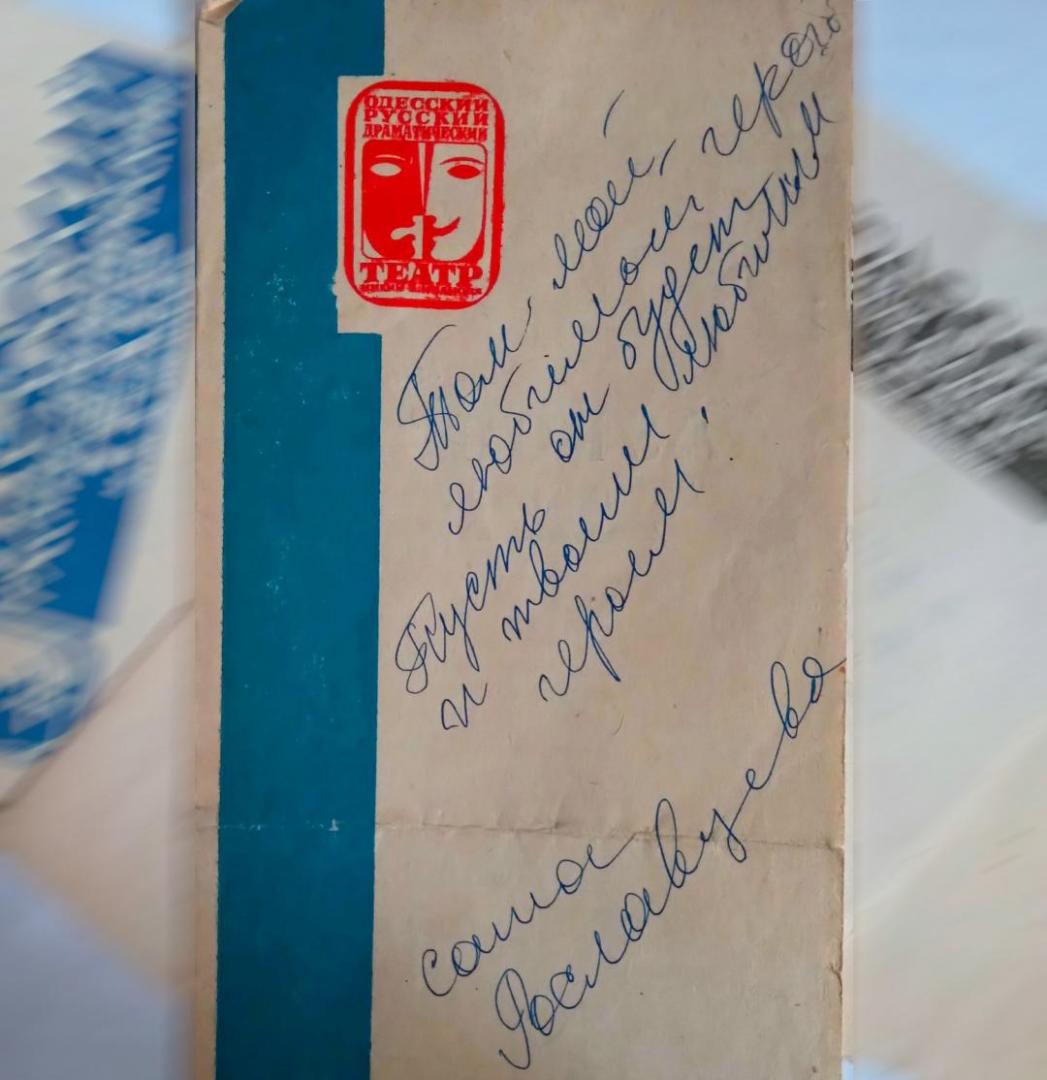 ОДЕССКИЙ
РУССКИЙ
ДРАМАТИЧЕСКИЙ
ТЕАТР
Том мой,
любимый герой
Пусть он будет
и твоим любимым
героем!
Саша
Рославцева